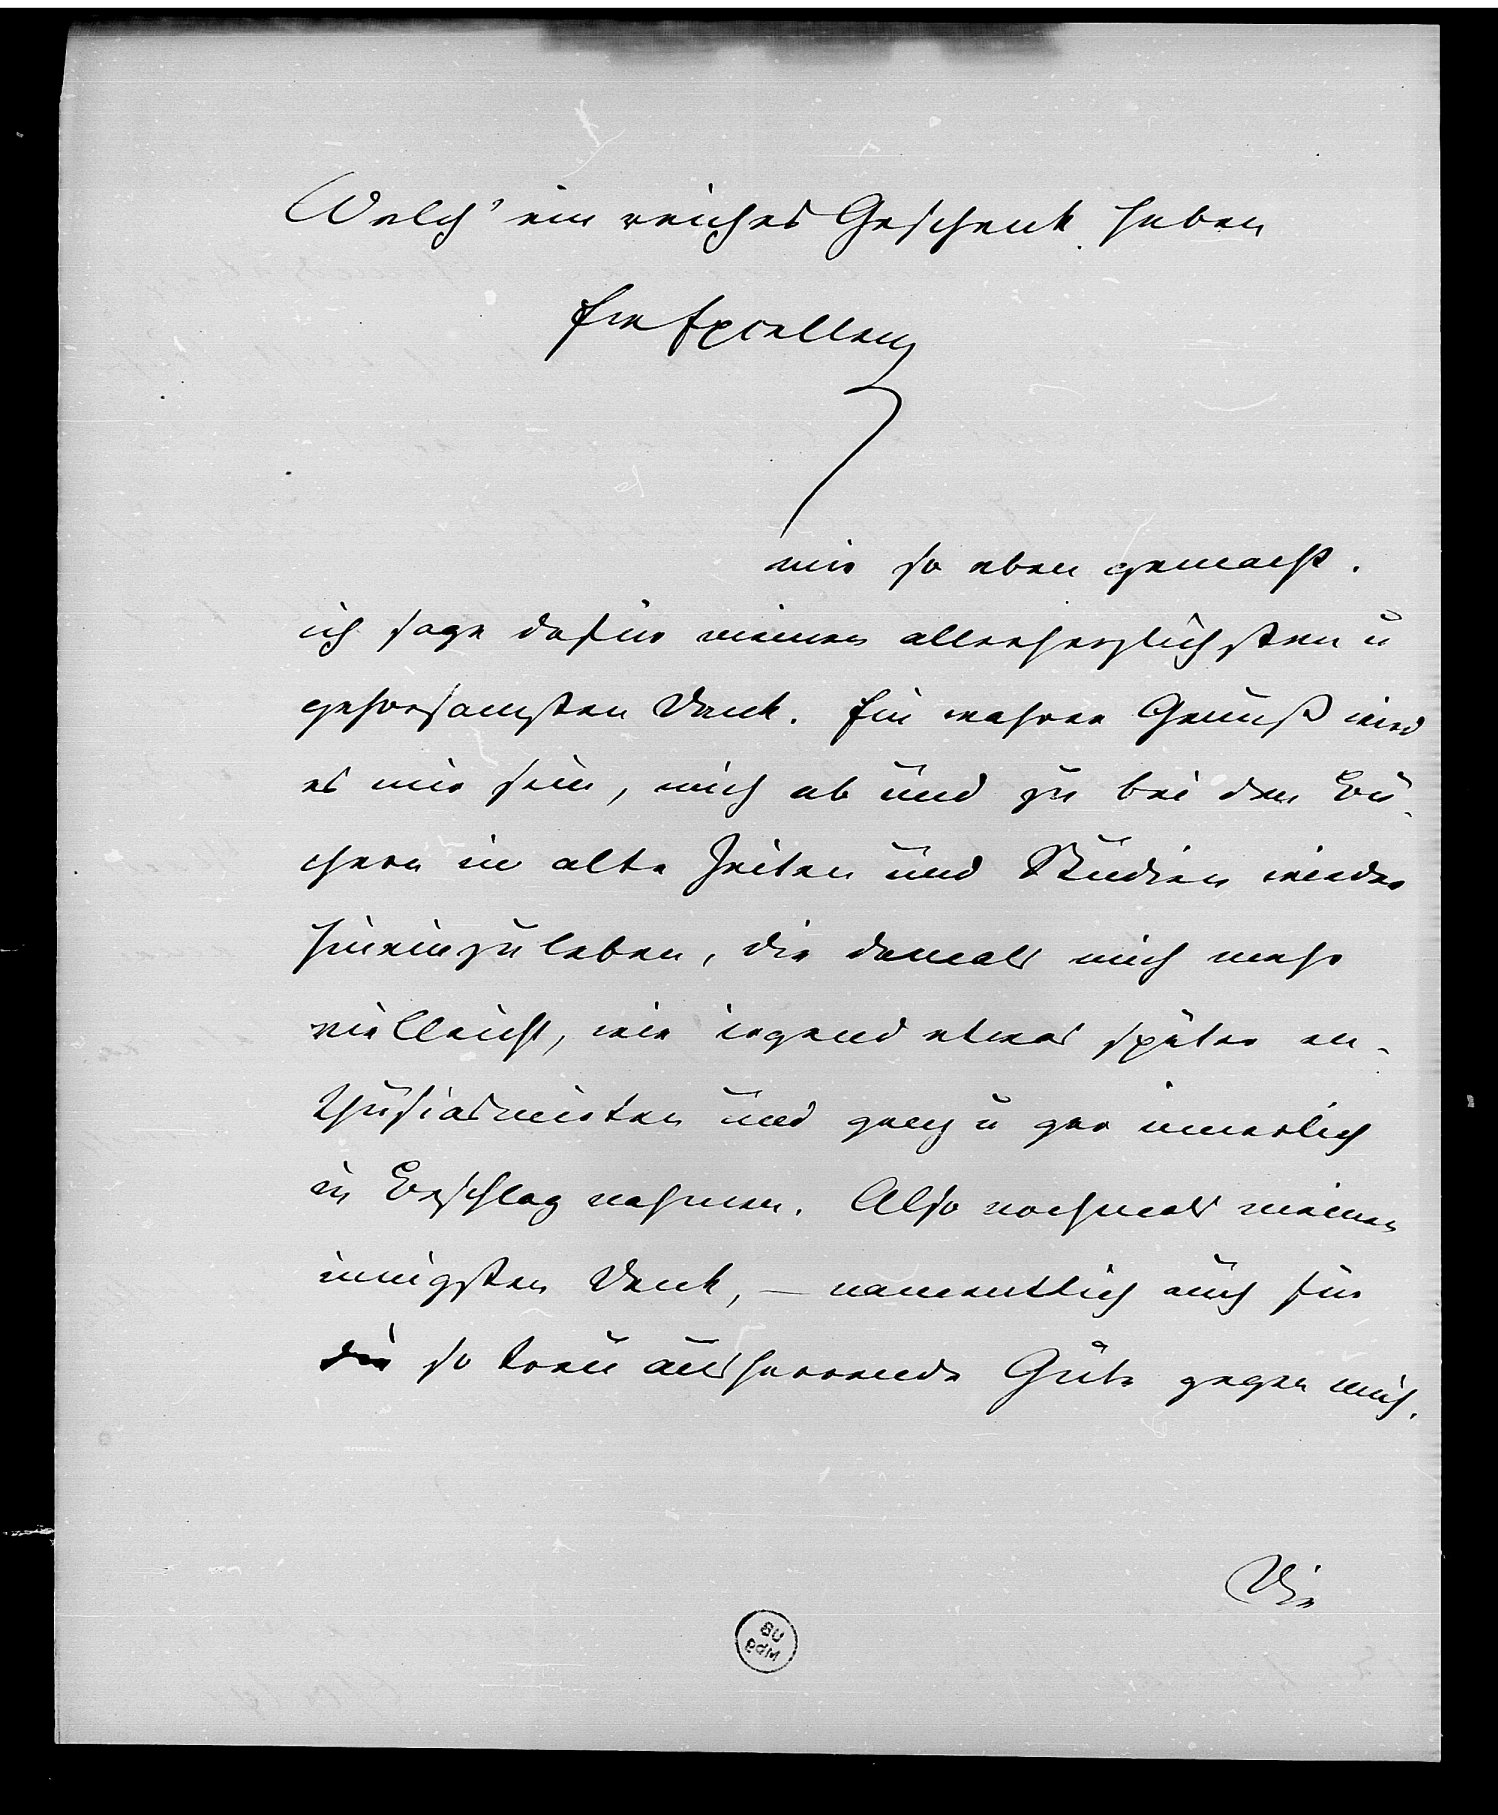 Welch' ein reiches Geschenk haben
Ew Excellenz
mir so eben gemacht.
ich sage dafür meinen allerherzlichsten u
gehorsamsten Dank. Ein wahrer Genuß wird
es mir sein, mich ab und zu bei den Bü-
chern in alte Zeiten und Studien wieder
hineinzuleben, die damals mich mehr
vielleicht, wie irgend etwas später en-
thusiasmirten und ganz u gar innerlich
in Beschlag nahmen. Also nochmals meinen
innigsten Dank, – namentlich auch für
die so treu ausharrende Güte gegen mich.
Die
UB
Mbg